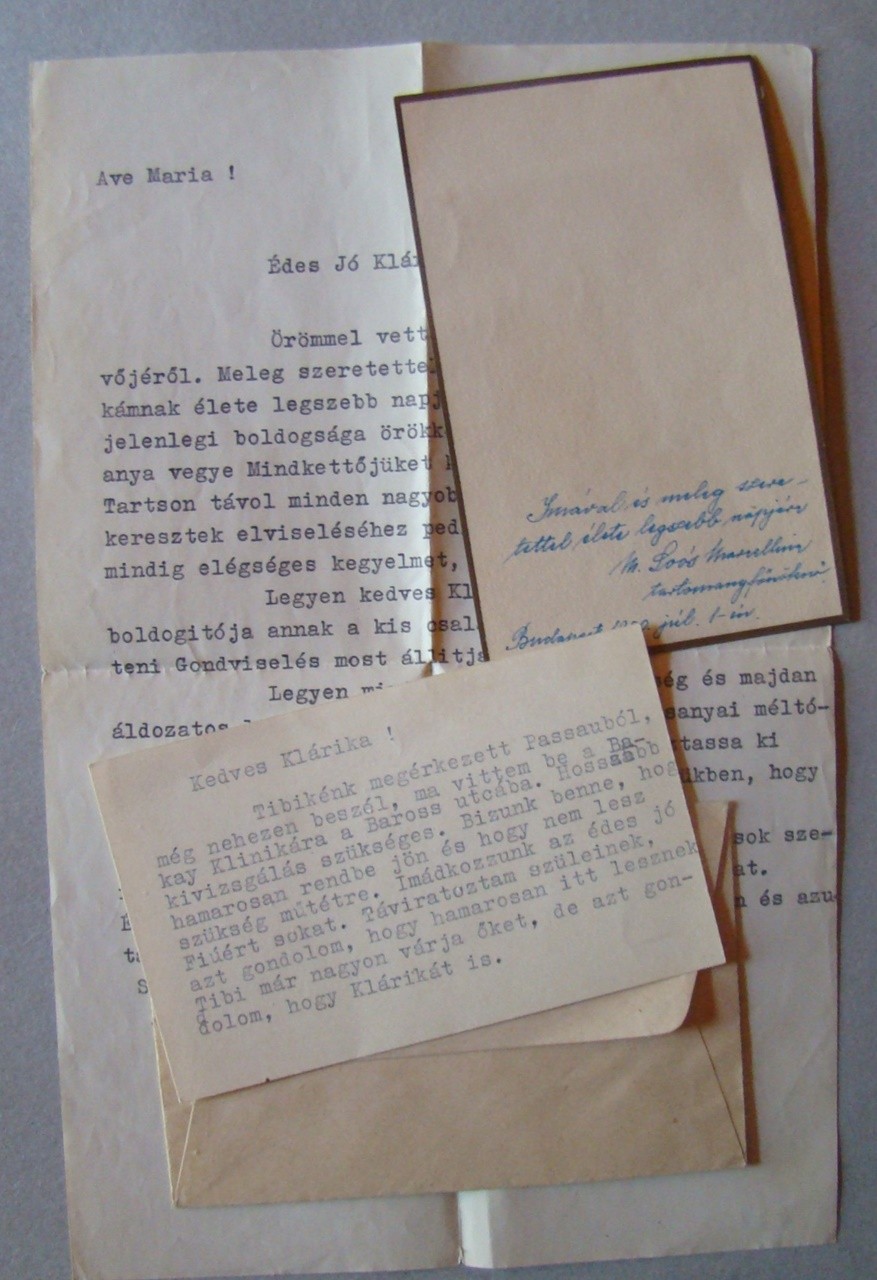 Ave Maria !
Édes Jó Klár
Örömmel vett
vőjéről. Meleg szeretettel
kámnak élete legszebb napj
jelenlegi boldogsága örökk
anya vegye Mindkettőjüket
Tartson távol minden nagyob
keresztek elviseléséhez ped
mindig elégséges kegyelmet,
Legyen kedves Kl
boldogitója annak a kis csal
teni Gondviselés most állitja
Legyen
ég és majdan
áldozatos
sanyai méltó-
tassa ki
ükben, hogy
sok sze-
at.
n és azu
Imával és meleg szere-
tettel élete legszebb napjára
M. Soós Marcellina
tartományfőnöknő
Budapest júl. 1-én.
Kedves Klárika !
Tibikénk megérkezett Passauból,
még nehezen beszél, ma vittem be a Ba-
kay Klinikára a Baross utcába. Hosszabb
kivizsgálás szükséges. Bizunk benne, hog
hamarosan rendbe jön és hogy nem lesz
szükség műtétre. Imádkozzunk az édes jó
Fiúért sokat. Táviratoztam szüleinek,
azt gondolom, hogy hamarosan itt lesznek
Tibi már nagyon várja őket, de azt gon-
dolom, hogy Klárikát is.